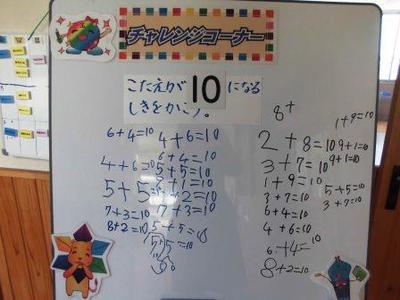 チャレンジコーナー
こたえが10になる
しきをかこう。
6+4=10
4+6=10
5+5
7+3=10
8+2=10
4+6=10
6+4=10
5+5=10
7+3=10
5+5=10
8+
1+9=10
2+8=10
9+1=10
3+7=10
9+1=10
1+9=10
3+7=10
5+5=10
6+4=10
3+7=10
4+6=10
6+4=10
8+2=10